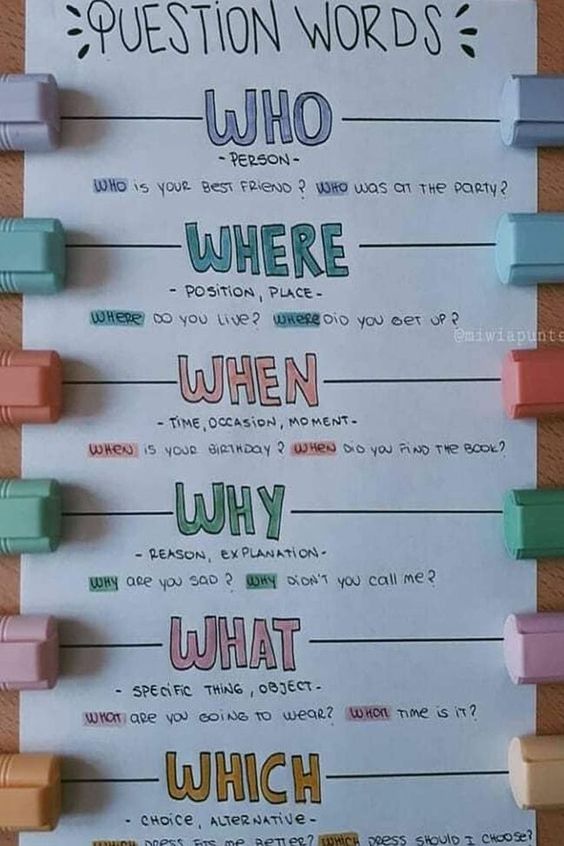 QUESTION WORDS
WHO
- PERSON -
WHO is YOUR BEST FRiEND? WHO was at THE PaRTY?
WHERE
- POSiTiON, PLACE -
WHERE DO YOU LiVE? WHERE DiD YOU GET UP?
@miwiapunte
WHEN
- TiME, OCCASiON, MOMENT -
WHEN iS YOUR BiRTHDAY? WHEN DiD YOU FiND THE BOOK?
WHY
- REASON, EXPLANATiON -
WHY aRe YOU SAD? WHY DiDN'T YOU call me?
WHAT
- SPECiFiC THiNG, OBJECT -
WHAT aRe YOU GOiNG TO weaR? WHAT Time is iT?
WHiCH
- CHOiCe, ALTERNATiVE -
WHiCH DRESS FiTS me BeTTeR? WHiCH DRESS SHOULD I CHOOSE?